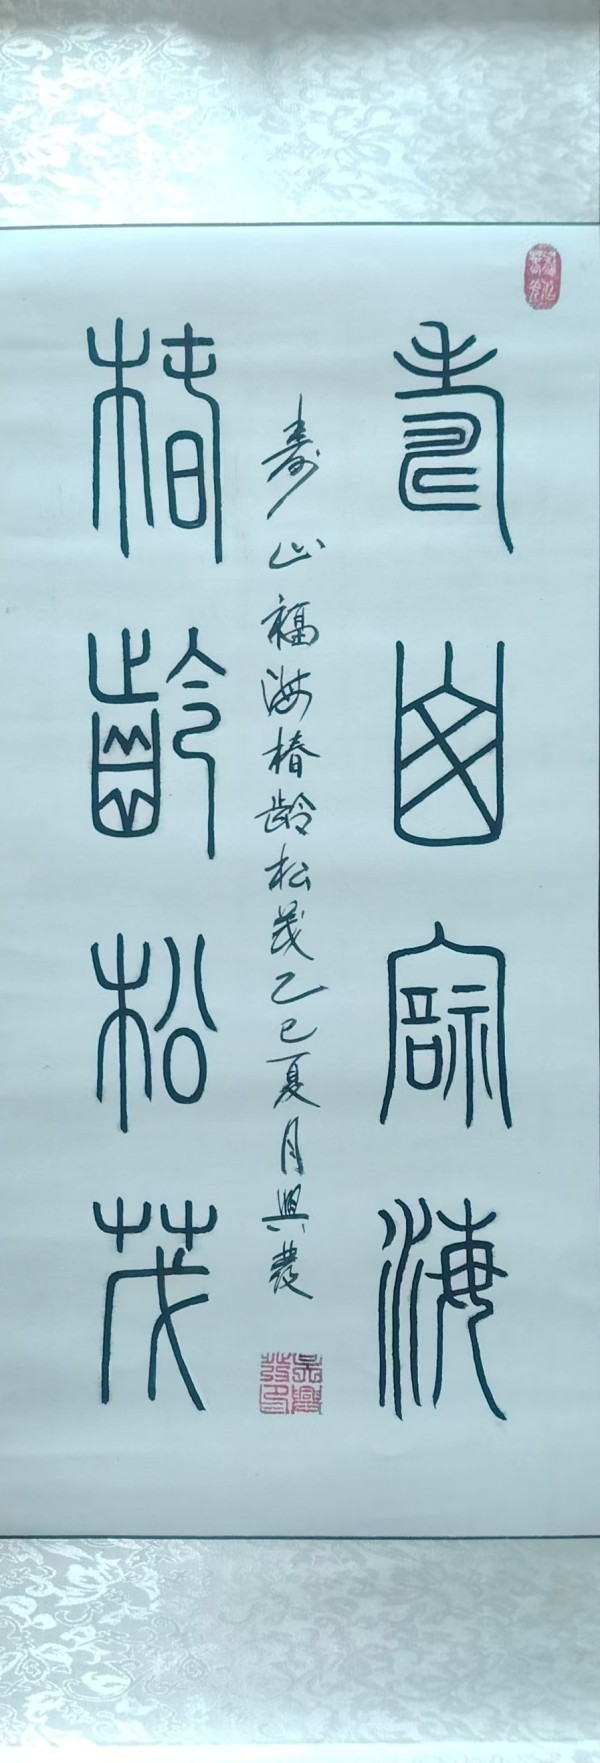 壽山福海
壽山福海椿齡松茂乙巳夏月興發
椿齡松茂